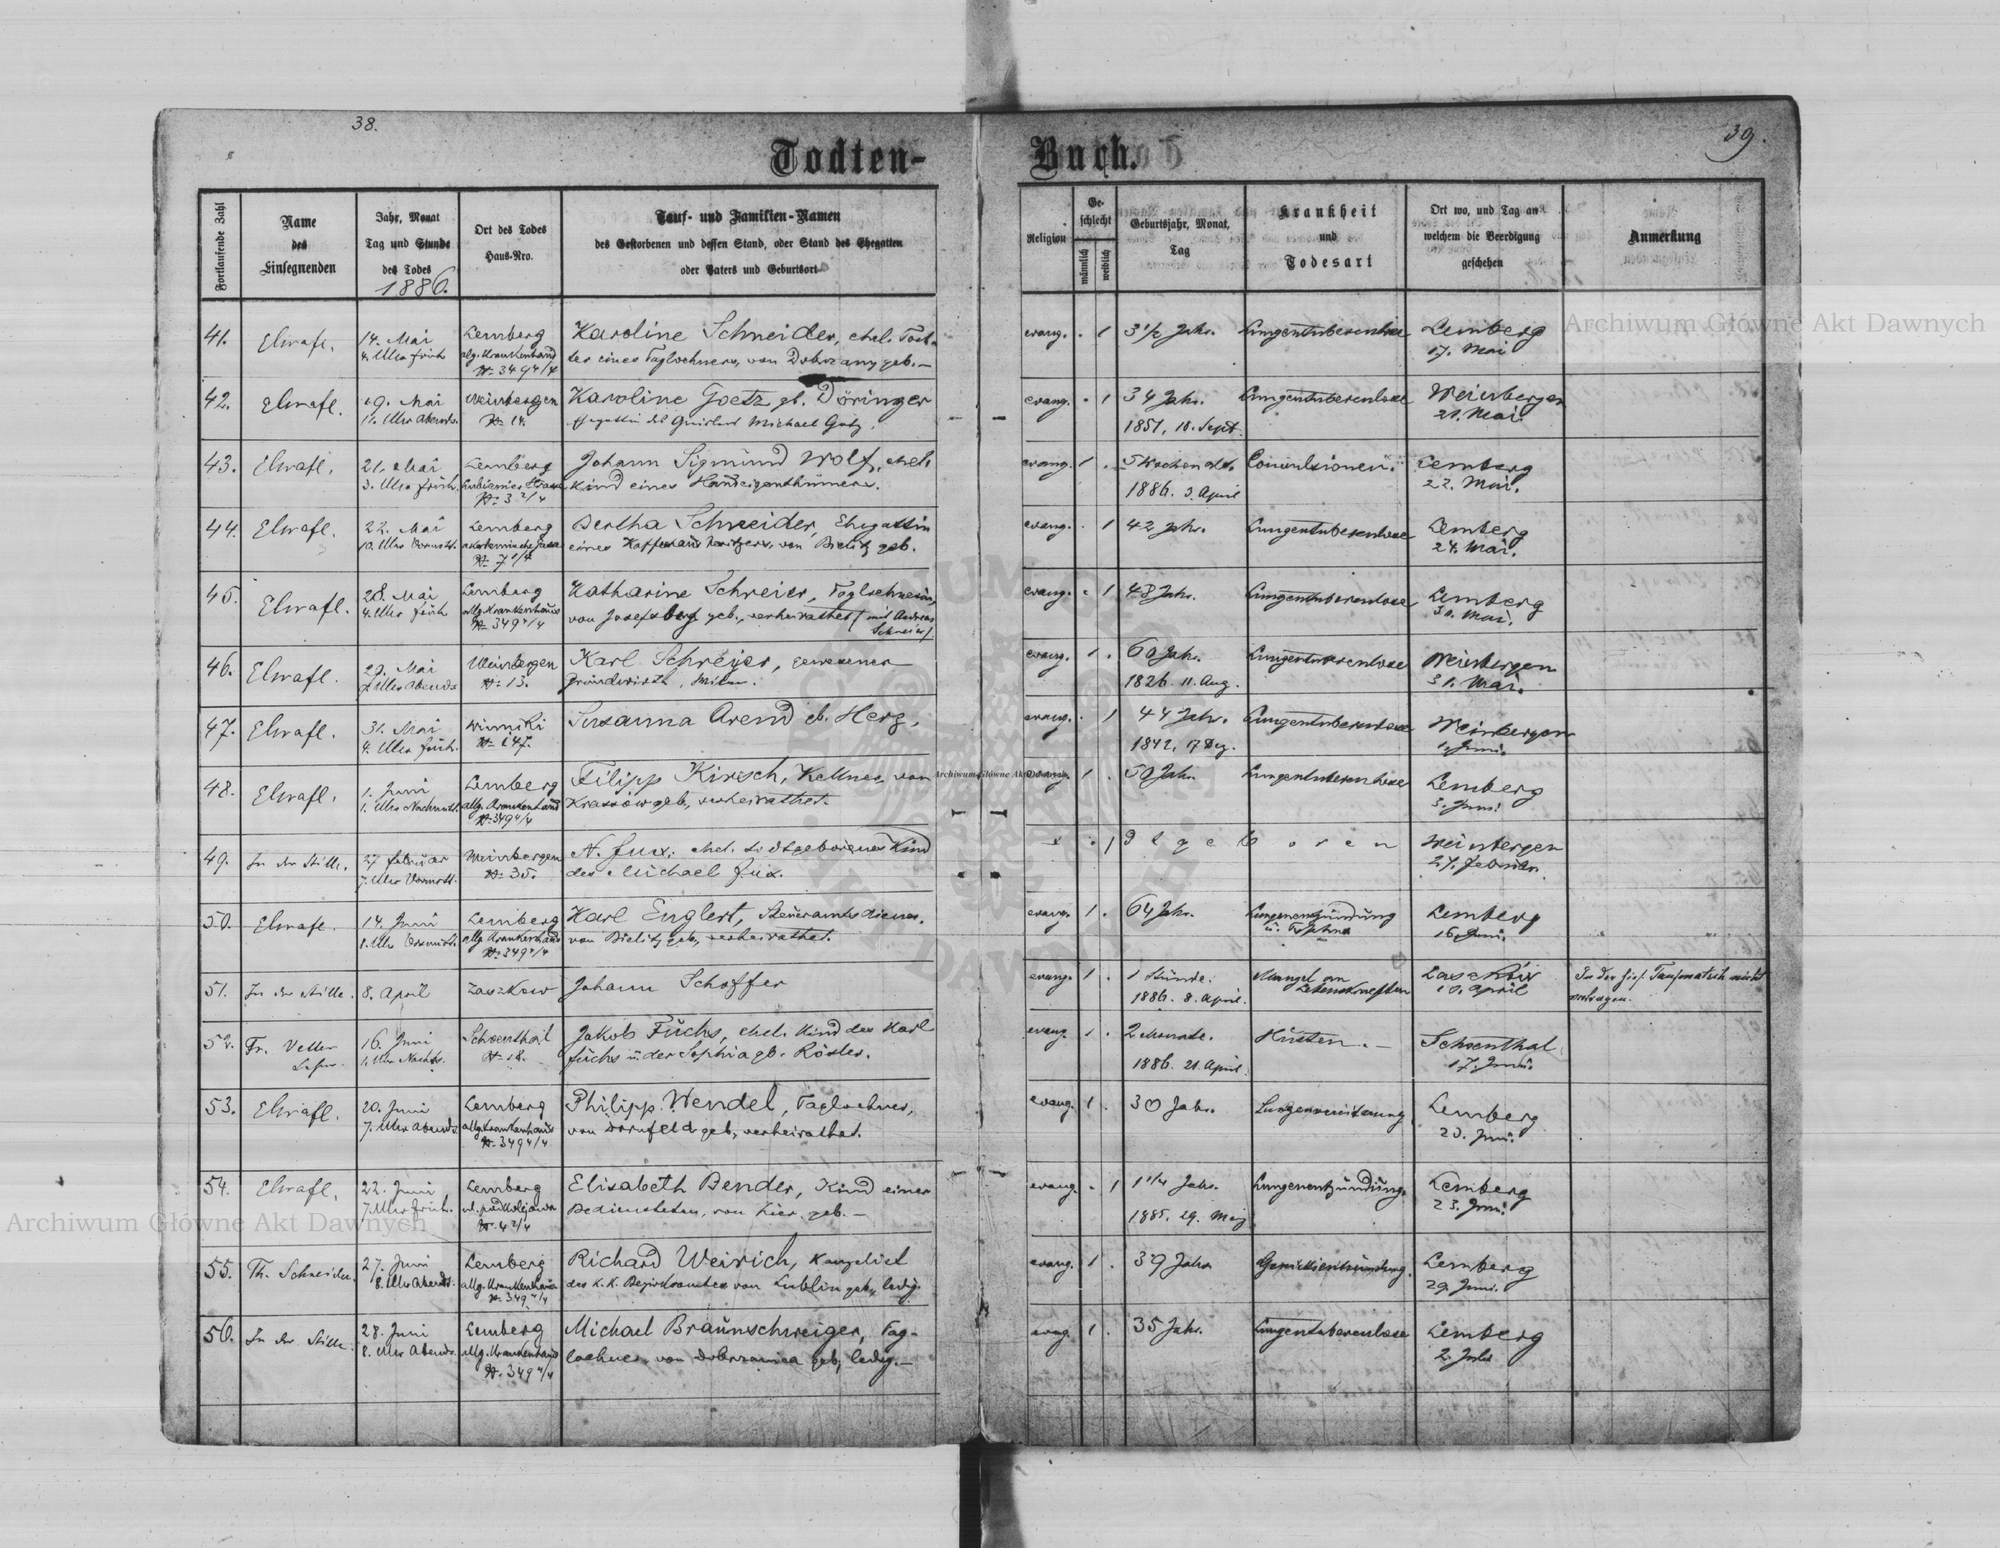 38.
39.
Todten-
Buch.
Fortlaufende Zahl
Name
des
Einsegnenden
Jahr, Monat
Tag und Stunde
des Todes
1886.
Ort des Todes
Haus-Nro.
Tauf- und Familien-Namen
des Gestorbenen und dessen Stand, oder Stand des Ehegatten
oder Vaters und Geburtsort
Religion
Ge-
schlecht
männlich
weiblich
Geburtsjahr, Monat,
Tag
Krankheit
und
Todesart
Ort wo, und Tag an
welchem die Beerdigung
geschehen
Anmerkung
41.
14. Mai
4. Uhr früh
Lemberg
allg. Krankenhaus
№ 349 4/4
Karoline Schneider, ehel. Toch-
ter eines Taglöhners, von Dobrzany geb. —
evang. . 1
3 1/2 Jahr.
Lungentuberculose
Lemberg
17. Mai
42.
19. Mai
11. Uhr Abends.
Weinbergen
№ 14.
Karoline Goetz gb. Döringer
Ehegattin des Michael Götz.
evang. . 1
34 Jahr.
1851, 18. Sept.
Lungentuberculose
Weinbergen
21. Mai.
43.
21. Mai
3. Uhr früh.
Lemberg
№ 3 2/4
Johann Sigmund Wolf, ehel.
Kind eines Hauseigenthümers.
evang. 1 .
5 Wochen alt.
1886. 3. April
Convulsionen.
Lemberg
22. Mai.
44.
22. Mai
10. Uhr Vormitt.
Lemberg
akademische Gasse
№ 7 1/4
Bertha Schneider, Ehegattin
eines Kaffeehaus besitzers, von Bielitz geb.
evang. . 1
42 Jahr.
Lungentuberculose
Lemberg
24. Mai.
45.
28. Mai
4. Uhr früh
Lemberg
allg. Krankenhaus
№ 349 4/4
Katharine Schreier, Taglöhnerin,
von Josefsberg geb., verheirathet / mit Andreas
Schreier /
evang. . 1
48 Jahr.
Lungentuberculose
Lemberg
30. Mai.
46.
29. Mai
7. Uhr Abends
Weinbergen
№ 13.
Karl Schreyer, gewesener
Grundwirth, Witwer.
evang. 1 .
60 Jahr.
1826. 11. Aug.
Lungentuberculose
Weinbergen
31. Mai.
47.
31. Mai
4. Uhr früh.
Winniki
№ 147.
Susanna Arend gb. Herz.
evang. . 1
44 Jahr.
1842, 17 Dez.
Lungentuberculose
Weinbergen
1. Juni.
48.
1. Juni
1. Uhr Nachmitt.
Lemberg
allg. Krankenhaus
№ 349 4/4
Filipp Kirsch, Kellner, von
Krassów geb., verheirathet.
evang. 1 .
50 Jahr.
Lungentuberculose
Lemberg
3. Juni.
49.
In der Stille.
27 Februar
7. Uhr Vormitt.
Weinbergen
№ 35.
N. Fux, ehel. todtgeborenes Kind
des Michael Fux.
. 1
Weinbergen
27. Februar.
50.
14. Juni
8. Uhr Vormitt.
Lemberg
allg. Krankenhaus
№ 349 4/4
Karl Englert, Steueramtsdiener,
von Bielitz geb., verheirathet.
evang. 1 .
64 Jahr.
Lungenentzündung
Lemberg
16. Juni.
51.
In der Stille.
8. April
Zaszkow
Johann Schoffer
evang. 1 .
1 Stunde.
1886. 8. April.
Mangel an
Lebenskraeften
10. April
In der hies. Taufmatrik nicht
52.
Fr. Vetter
Lehrer.
16. Juni
1. Uhr Nachts.
Schoenthal
№ 18.
Jakob Fuchs, ehel. Kind des Karl
Fuchs u. der Sophia gb. Rösler.
evang. 1 .
2 Monate.
1886. 21. April.
Husten. —
Schoenthal
17. Juni.
53.
20. Juni
7. Uhr Abends
Lemberg
allg. Krankenhaus
№ 349 4/4
Philipp Wendel, Taglöhner,
von Dornfeld geb., verheirathet.
evang. 1 .
30 Jahr.
Lungenvereiterung
Lemberg
23. Juni.
54.
22. Juni
7. Uhr früh.
Lemberg
№ 4 2/4
Elisabeth Bender, Kind eines
Bediensteten, von hier geb. —
evang. . 1
1 1/4 Jahr.
1885. 29. März
Lungenentzündung.
Lemberg
23. Juni.
55.
Th. Schneider.
27. Juni
8. Uhr Abends.
Lemberg
allg. Krankenhaus
№ 349 4/4
Richard Weirich, Kanzlist
des k. k. Bezirksamtes von Lublin geb., ledig.
evang. 1 .
39 Jahr
Lemberg
29. Juni.
56.
In der Stille.
28. Juni
8. Uhr Abends.
Lemberg
allg. Krankenhaus
№ 349 4/4
Michael Braunschweiger, Tag-
löhner, von Dobrzanica geb., ledig. —
evang. 1 .
35 Jahr.
Lungentuberculose
Lemberg
2. Juli
Archiwum Główne Akt Dawnych
Archiwum Główne Akt Dawnych
Archiwum Główne Akt Dawnych